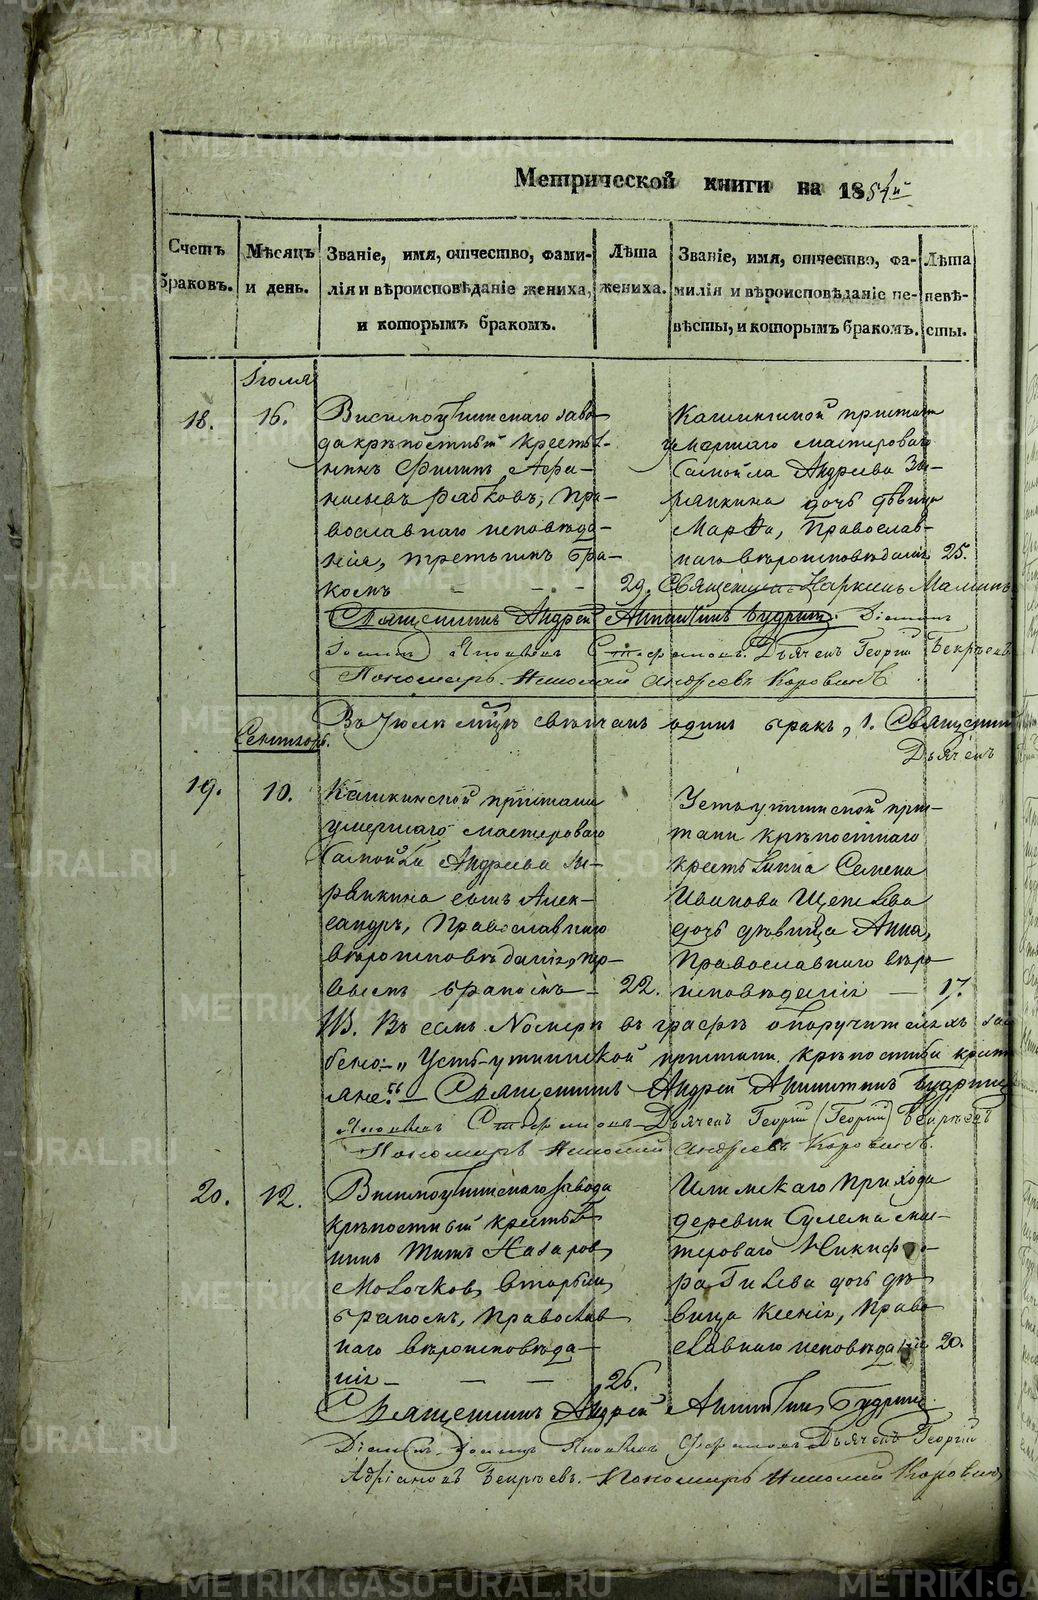 Метрической книги на 1854й
Счетъ браковъ.
Мѣсяцъ и день.
Званіе, имя, отчество, фами-
лія и вѣроисповѣданіе жениха,
и которымъ бракомъ.
Лѣта
жениха.
Званіе, имя, отчество, фа-
милія и вѣроисповѣданіе не-
вѣсты, и которымъ бракомъ.
Лѣта
невѣ-
сты.
Іюля
18.
16.
Висимоуткинскаго заво-
да крѣпостный крестья-
нинъ Филипъ Афа-
насьевъ Рябковъ, пра-
вославнаго исповѣда-
нія, третьимъ бра-
комъ - - -
29.
Кашкинской пристани
умершаго мастероваго
Самойла Андреева Зы-
рянкина дочь дѣвица
Марѳа, Православ-
наго вѣроисповѣданія 25.
Священникъ Наркисъ Маминъ
Священникъ Андрей Удринц
Діаконъ
Стефановъ. Дьячекъ Георгій Бекрѣевъ
Пономарь Николай Андреевъ Коровинъ
Въ Іюлѣ мцѣ свѣнчанъ одинъ бракъ, 1. Священникъ
Дьячекъ
Сентябрь.
19.
10.
Кашкинской пристани
умершаго мастероваго
Самойла Андреева Зы-
рянкина сынъ Алек-
сандръ, Православнаго
вѣроисповѣданія, пер-
вымъ бракомъ - 22.
Устьуткинской при-
стани крѣпостнаго
крестьянина Семена
Иванова Щепева
дочь дѣвица Анна,
Православнаго вѣро
исповѣданія - 17.
NB. Въ семъ Номерѣ въ графѣ о поручителяхъ
"Усть-уткинской пристани крѣпостные крестья
яне." - Священникъ Андрей
Стефановъ Дьячекъ Георгій (Георгій) Бекрѣевъ
Пономарь Николай Андреевъ Коровинъ.
20.
12.
Висимоуткинскаго завода
крѣпостный крестья
нинъ Титъ Назаровъ
Молочковъ вторымъ
бракомъ, Православ
наго вѣроисповѣда-
нія - - -
26.
Илимскаго прихода
деревни Сулема мас-
тероваго Никифо-
ра Гилева дочь дѣ-
вица Ксенія, Право
славнаго исповѣданія 20.
Священникъ Андрей
Діаконъ Стефановъ Дьячекъ Георгій
Адріановъ Бекрѣевъ. Пономарь Николай Коровинъ
METRIKI.GASO-URAL.RU